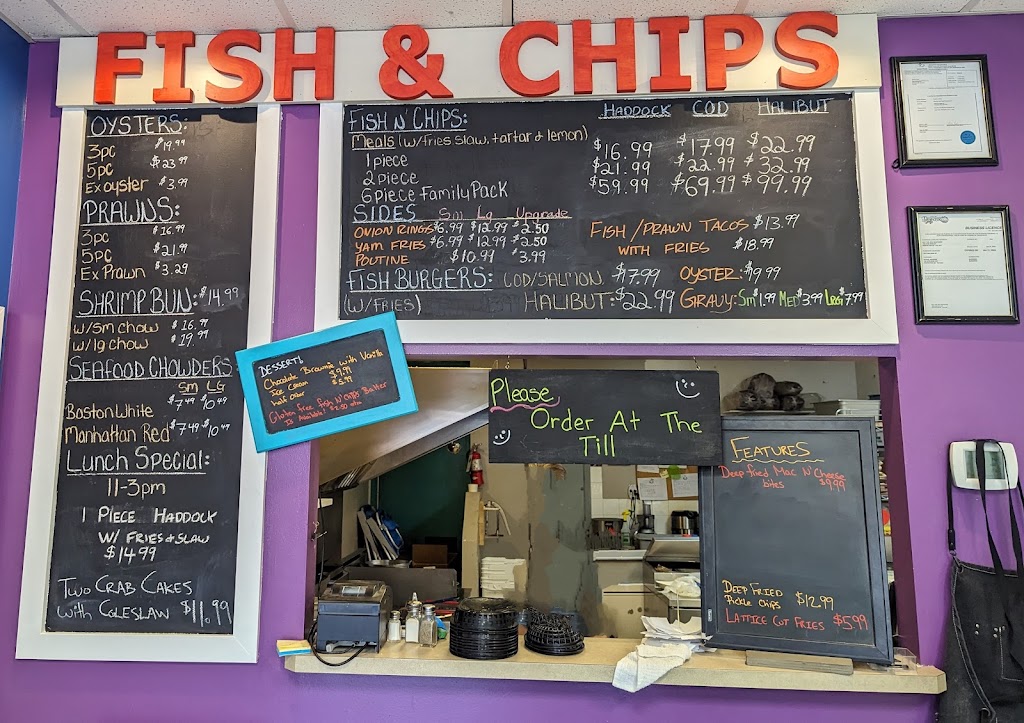 FISH & CHIPS
OYSTERS:
3pc $19.99
5pc $23.99
Ex oyster $3.99
PRAWNS:
3pc $16.99
5pc $21.99
Ex Prawn $3.29
SHRIMP BUN: $14.99
w/sm chow $16.99
w/lg chow $19.99
SEAFOOD CHOWDERS
SM LG
Boston White $7.49 $10.49
Manhattan Red $7.49 $10.49
Lunch Special:
11-3pm
1 PIECE HADDOCK
W/ FRIES & SLAW
$14.99
TWO CRAB CAKES
with COLESLAW $11.99
FISH N' CHIPS: HADDOCK COD HALIBUT
Meals (w/fries slaw, tartar & lemon)
1 piece $16.99 $17.99 $22.99
2 piece $21.99 $22.99 $32.99
6 piece Family Pack $59.99 $69.99 $99.99
SIDES Sm Lg Upgrade
ONION RINGS $6.99 $12.99 $2.50
YAM FRIES $6.99 $12.99 $2.50
POUTINE $10.99 $3.99
FISH/PRAWN TACOS $13.99
WITH FRIES $18.99
FISH BURGERS: COD/SALMON $17.99
(W/FRIES) HALIBUT: $22.99
OYSTER: $19.99
GRAVY: Sm $1.99 Med $3.99 Leg $7.99
DESSERT!
Chocolate Brownie with Vanilla
Ice Cream $9.99
half order $5.99
Gluten free Fish N' Chips Batter
Is Available!
Please
Order At The
Till
FEATURES
Deep fried Mac N' Cheese
bites $9.99
DEEP FRIED
Pickle chips $12.99
LATTICE CUT FRIES $5.99
BUSINESS LICENCE